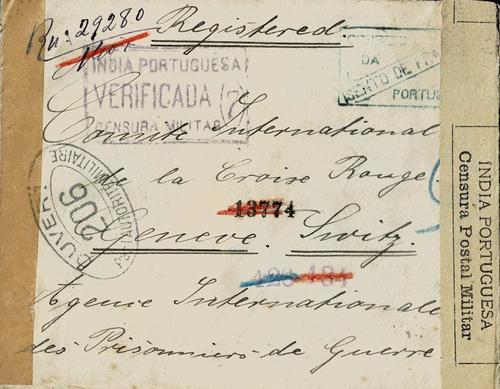 29280
Registered.
INDIA PORTUGUESA
VERIFICADA (7)
CENSURA MILITAR
DA
ISENTO DE
PORTU
Comité International
de la Croise Rouge.
13774
Geneve. Switz.
Agence Internationale
des Prisonniers de Guerre
OUVERT
AUTORITÉ MILITAIRE
206
INDIA PORTUGUESA
Censura Postal Militar